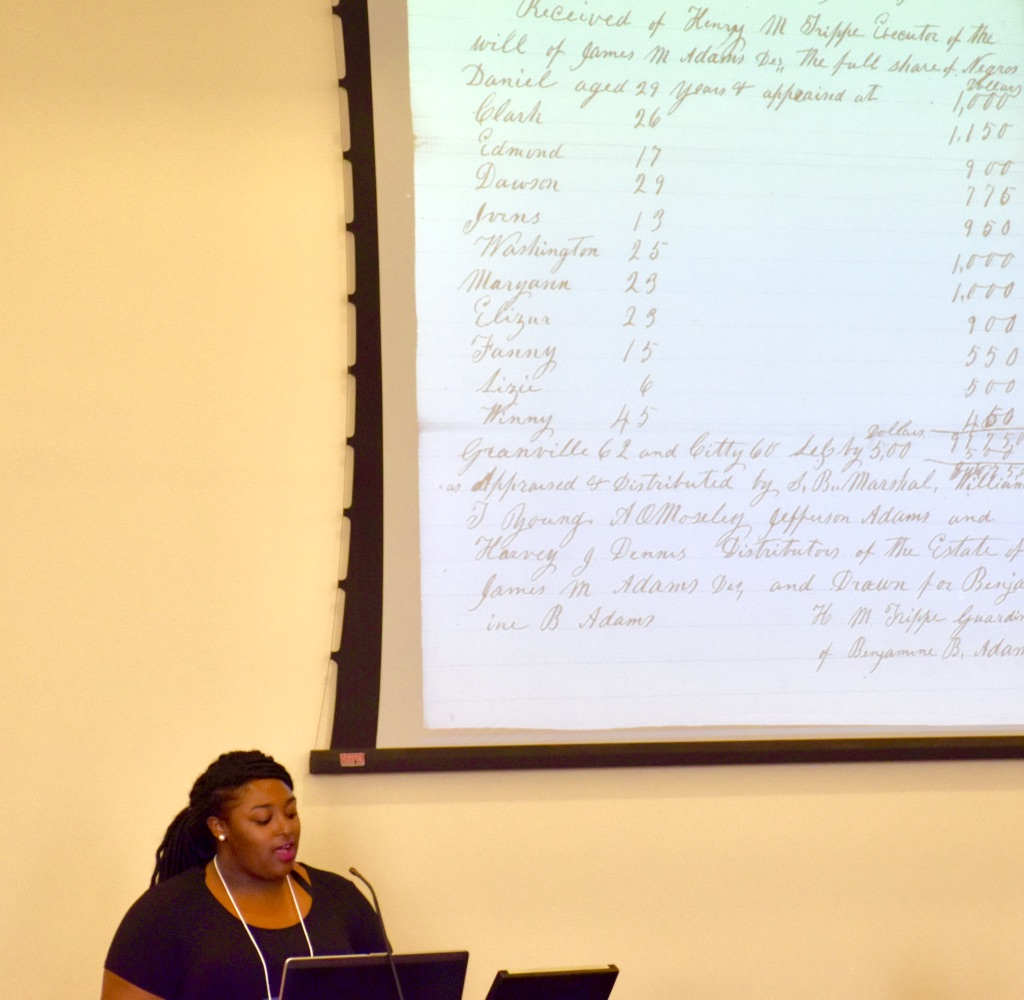 Received of Henry M Trippe Executor of the
will of James M Adams Des, the full share of Negros
Dollars
Daniel aged 29 years & appraised at 1,000
Clark 26 1,150
Edmond 17 900
Dawson 29 775
Ivins 13 950
Washington 25 1,000
Maryann 23 1,000
Elizur 23 900
Fanny 15 550
Lizie 6 500
Winny 45 450
Granville 62 and Citty 60 by Dollars 5,00
as Appraised & Distributed by S. B. Marshal, William
T Young. A O Moseley Jefferson Adams and
Harvey J Dennis Distributors of the Estate of
James M Adams Des, and Drawn for Benja
ine B Adams
H M Trippe Guardin
of Benjamine B. Adam